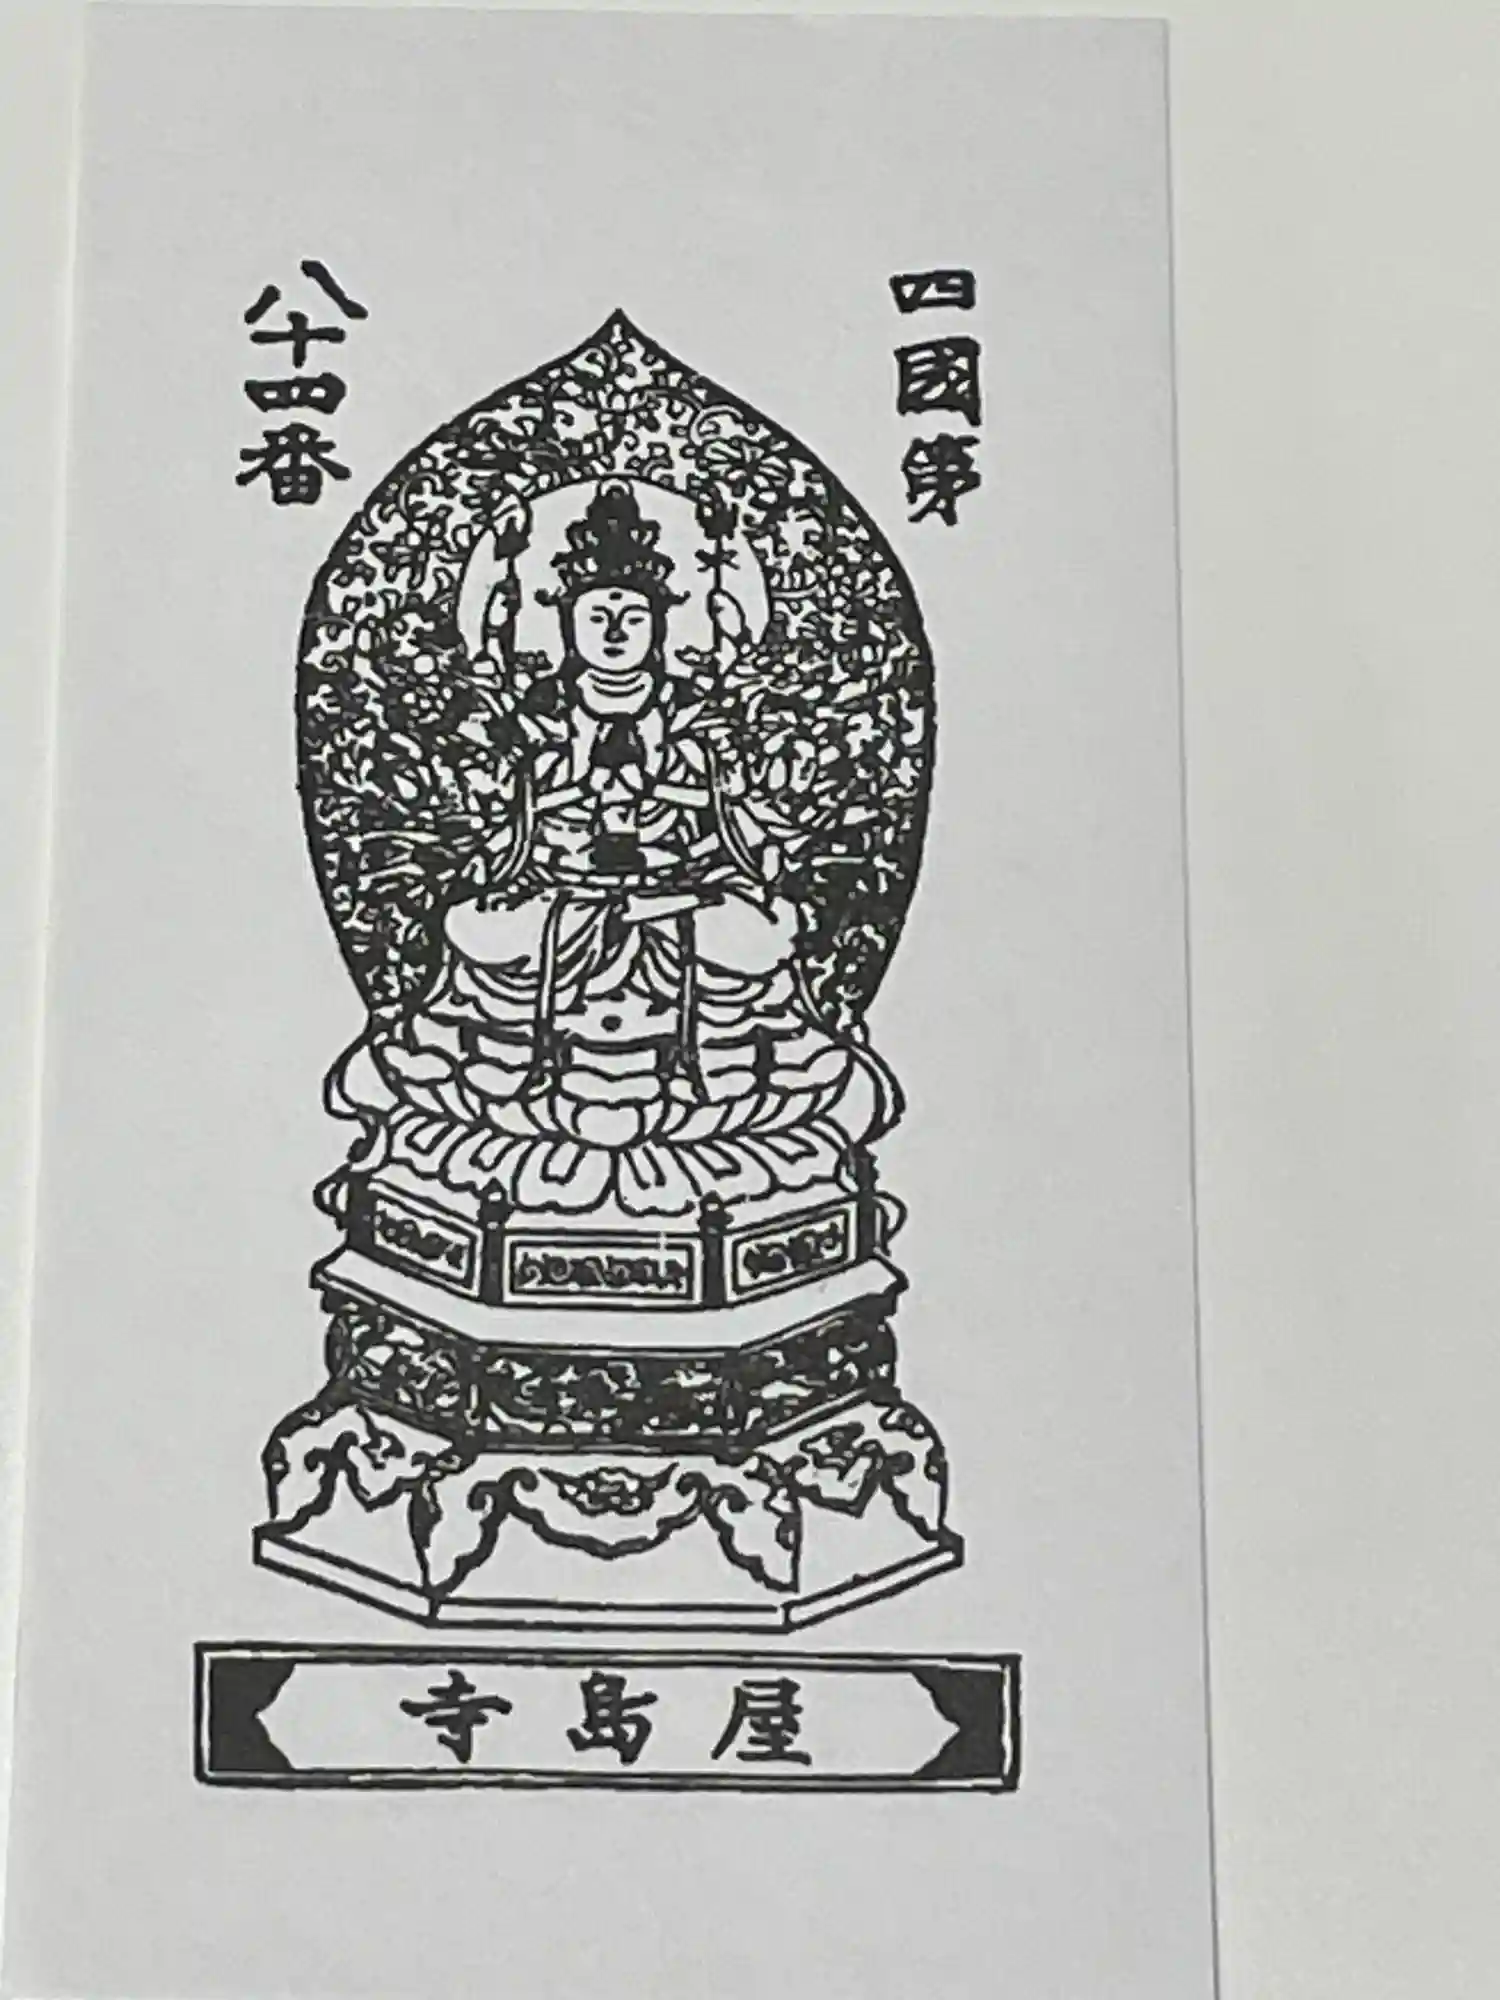 四國第
八十四番
屋島寺